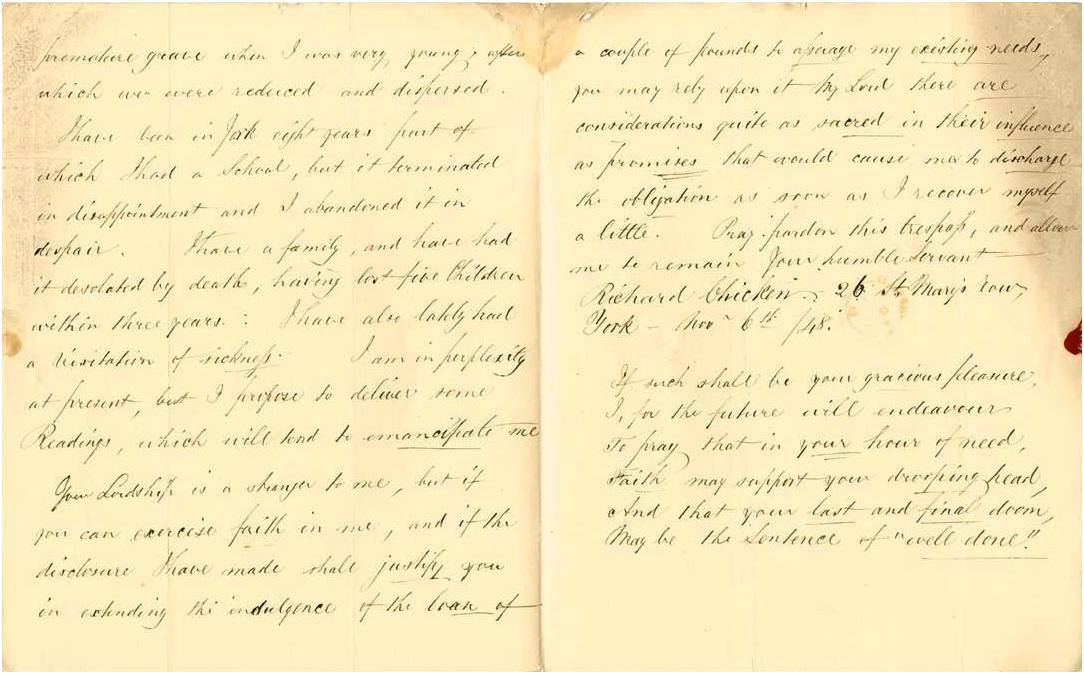 premature grave when I was very young; after
which we were reduced and dispersed.
I have been in York eight years part of
which I had a School, but it terminated
in disappointment and I abandoned it in
despair. I have a family, and have had
it desolated by death, having lost five Children
within three years. I have also lately had
a visitation of sickness. I am in perplexity
at present, but I propose to deliver some
Readings, which will tend to emancipate me
Your Lordship is a stranger to me, but if
you can exercise faith in me, and if the
disclosure I have made shall justify you
in extending the indulgence of the loan of
a couple of pounds to assuage my existing needs,
you may rely upon it My Lord there are
considerations quite as sacred in their influence
as promises that would cause me to discharge
the obligation as soon as I recover myself
a little. Pray pardon this trespass, and allow
me to remain Your humble Servant
Richard Chicken. 26 St. Mary's Row,
York - Novr 6th /48.
If such shall be your gracious pleasure,
I, for the future will endeavour
To pray that in your hour of need,
Faith may support your drooping head,
And that your last and final doom,
May be the Sentence of "well done".